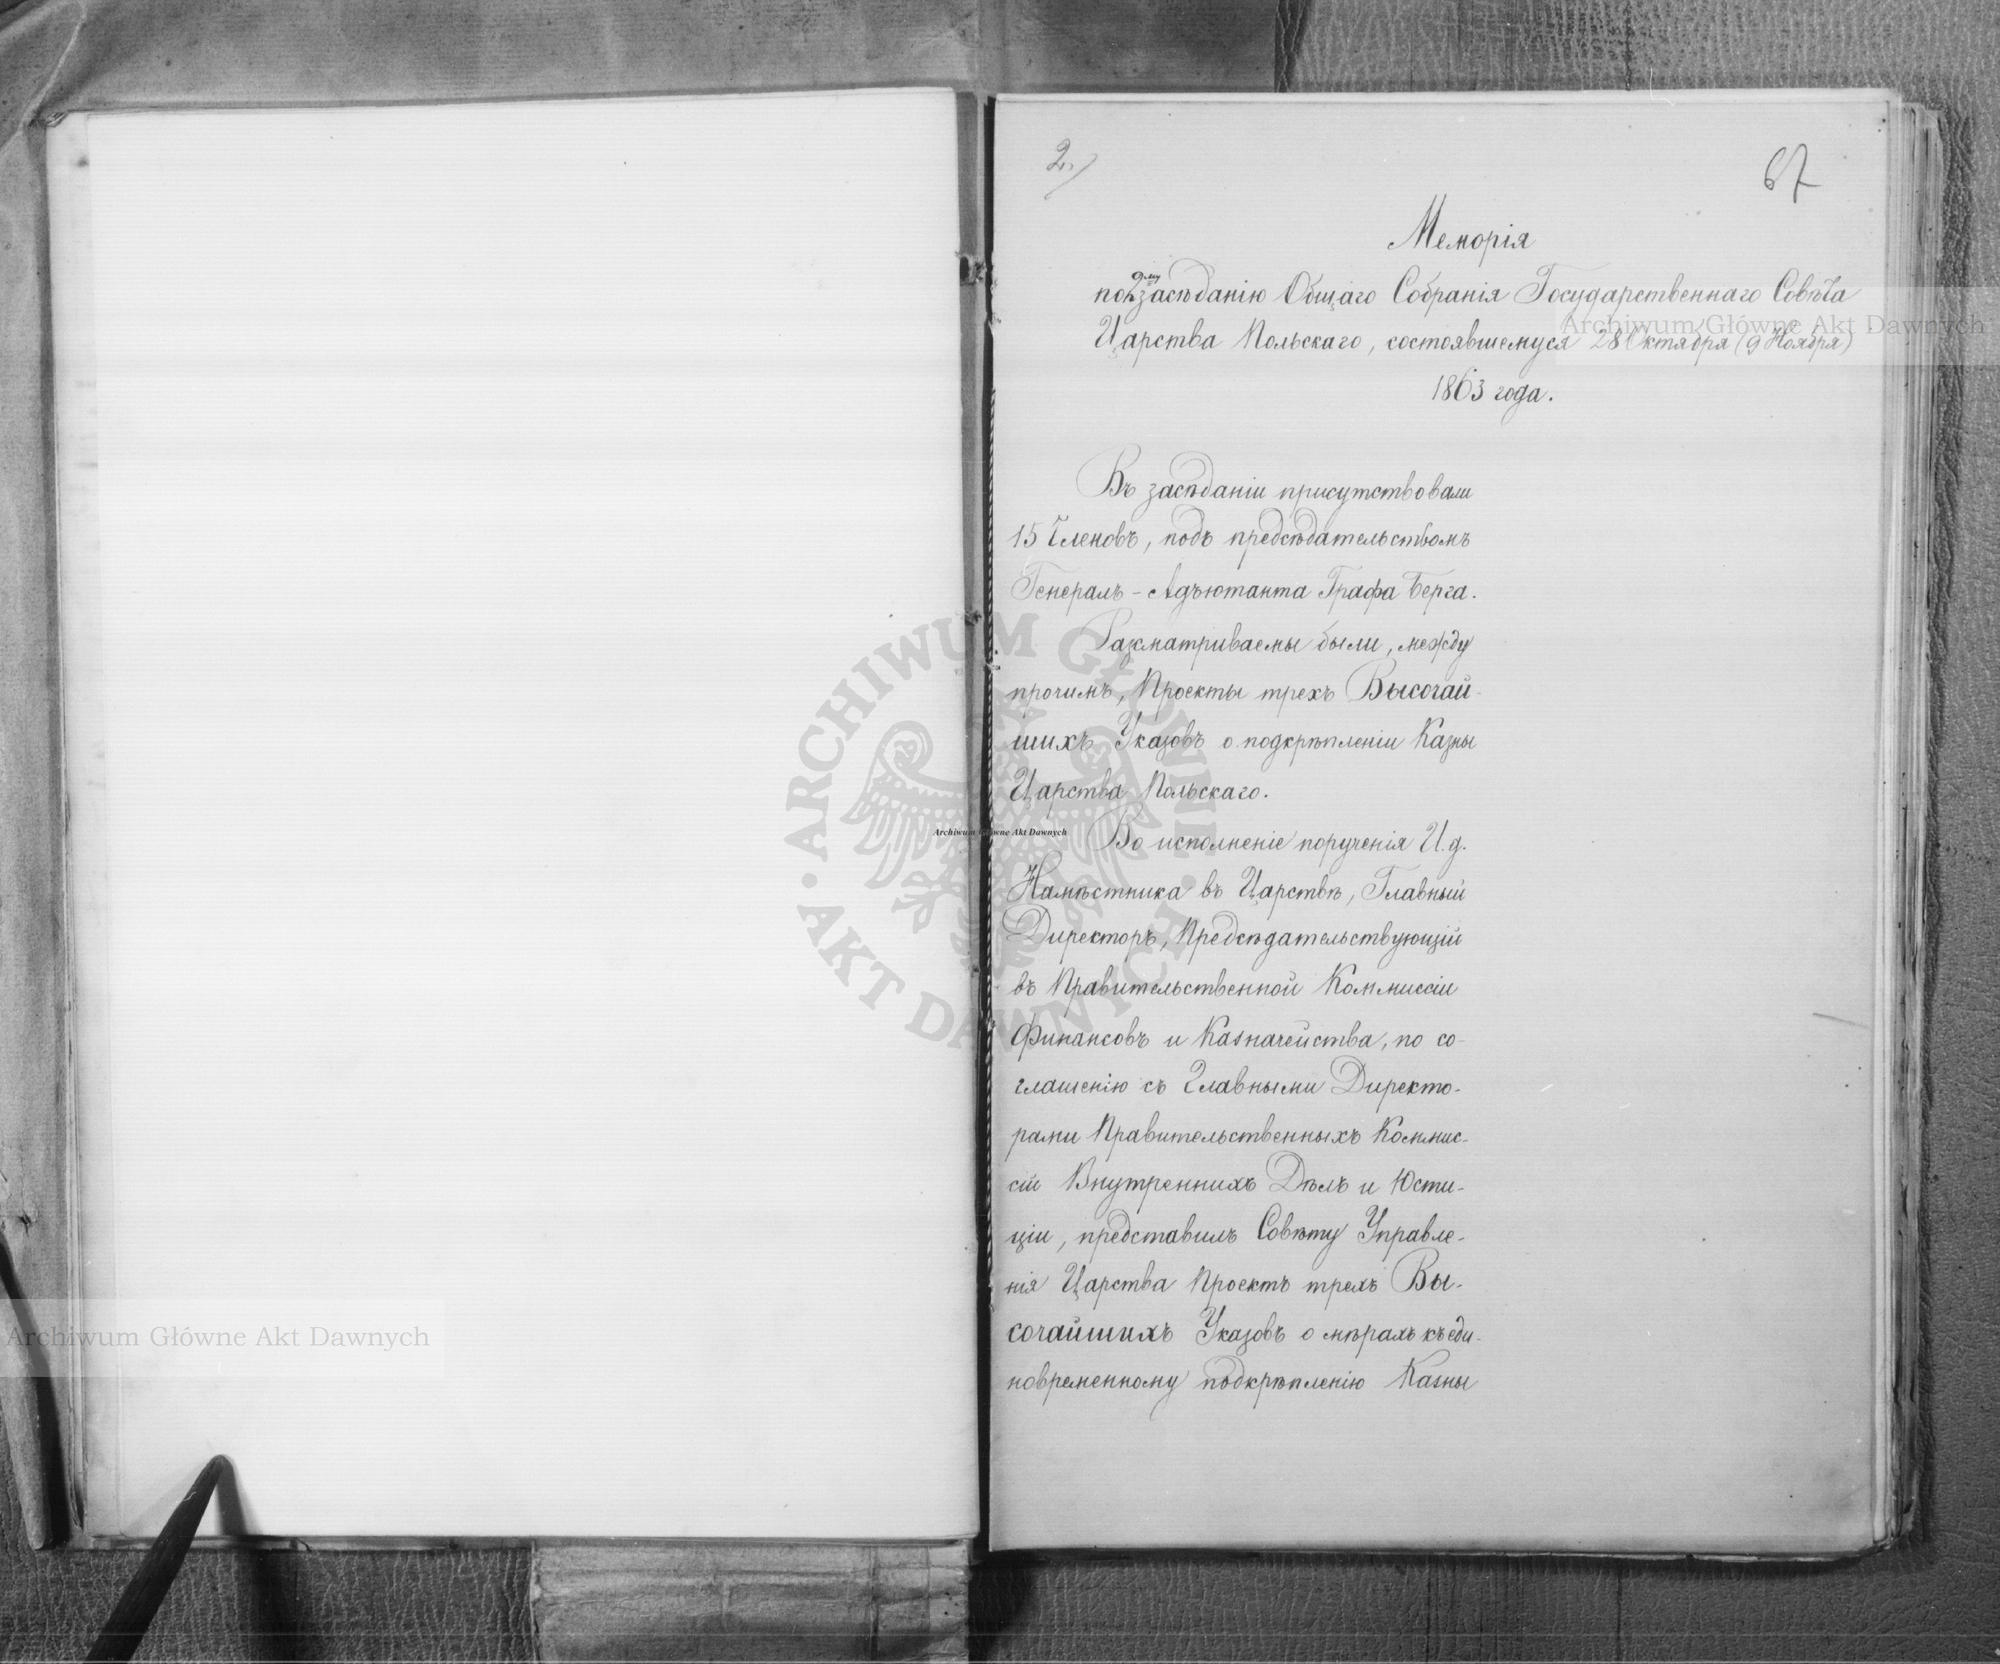 2./
67
Меморія
по 9му засѣданію Общаго Собранія Государственнаго Совѣта
Царства Польскаго, состоявшемуся 28 Октября (9 Ноября)
1863 года.
Въ засѣданіи присутствовали
15 Членовъ, подъ предсѣдательствомъ
Генералъ-Адъютанта Графа Берга.
Разсматриваемы были, между
прочимъ, Проекты трехъ Высочай-
шихъ Указовъ о подкрѣпленіи Казны
Царства Польскаго.
Во исполненіе порученія И.д.
Намѣстника въ Царствѣ, Главный
Директоръ, Предсѣдательствующій
въ Правительственной Коммиссіи
Финансовъ и Казначейства, по со-
глашенію съ Главными Директо-
рами Правительственныхъ Коммис-
сій Внутреннихъ Дѣлъ и Юсти-
ціи, представилъ Совѣту Управле-
нія Царства Проектъ трехъ Вы-
сочайшихъ Указовъ о мѣрахъ къ еди-
новременному подкрѣпленію Казны
Archiwum Główne Akt Dawnych
Archiwum Główne Akt Dawnych
Archiwum Główne Akt Dawnych
· ARCHIWUM GŁÓWNE · AKT DAWNYCH